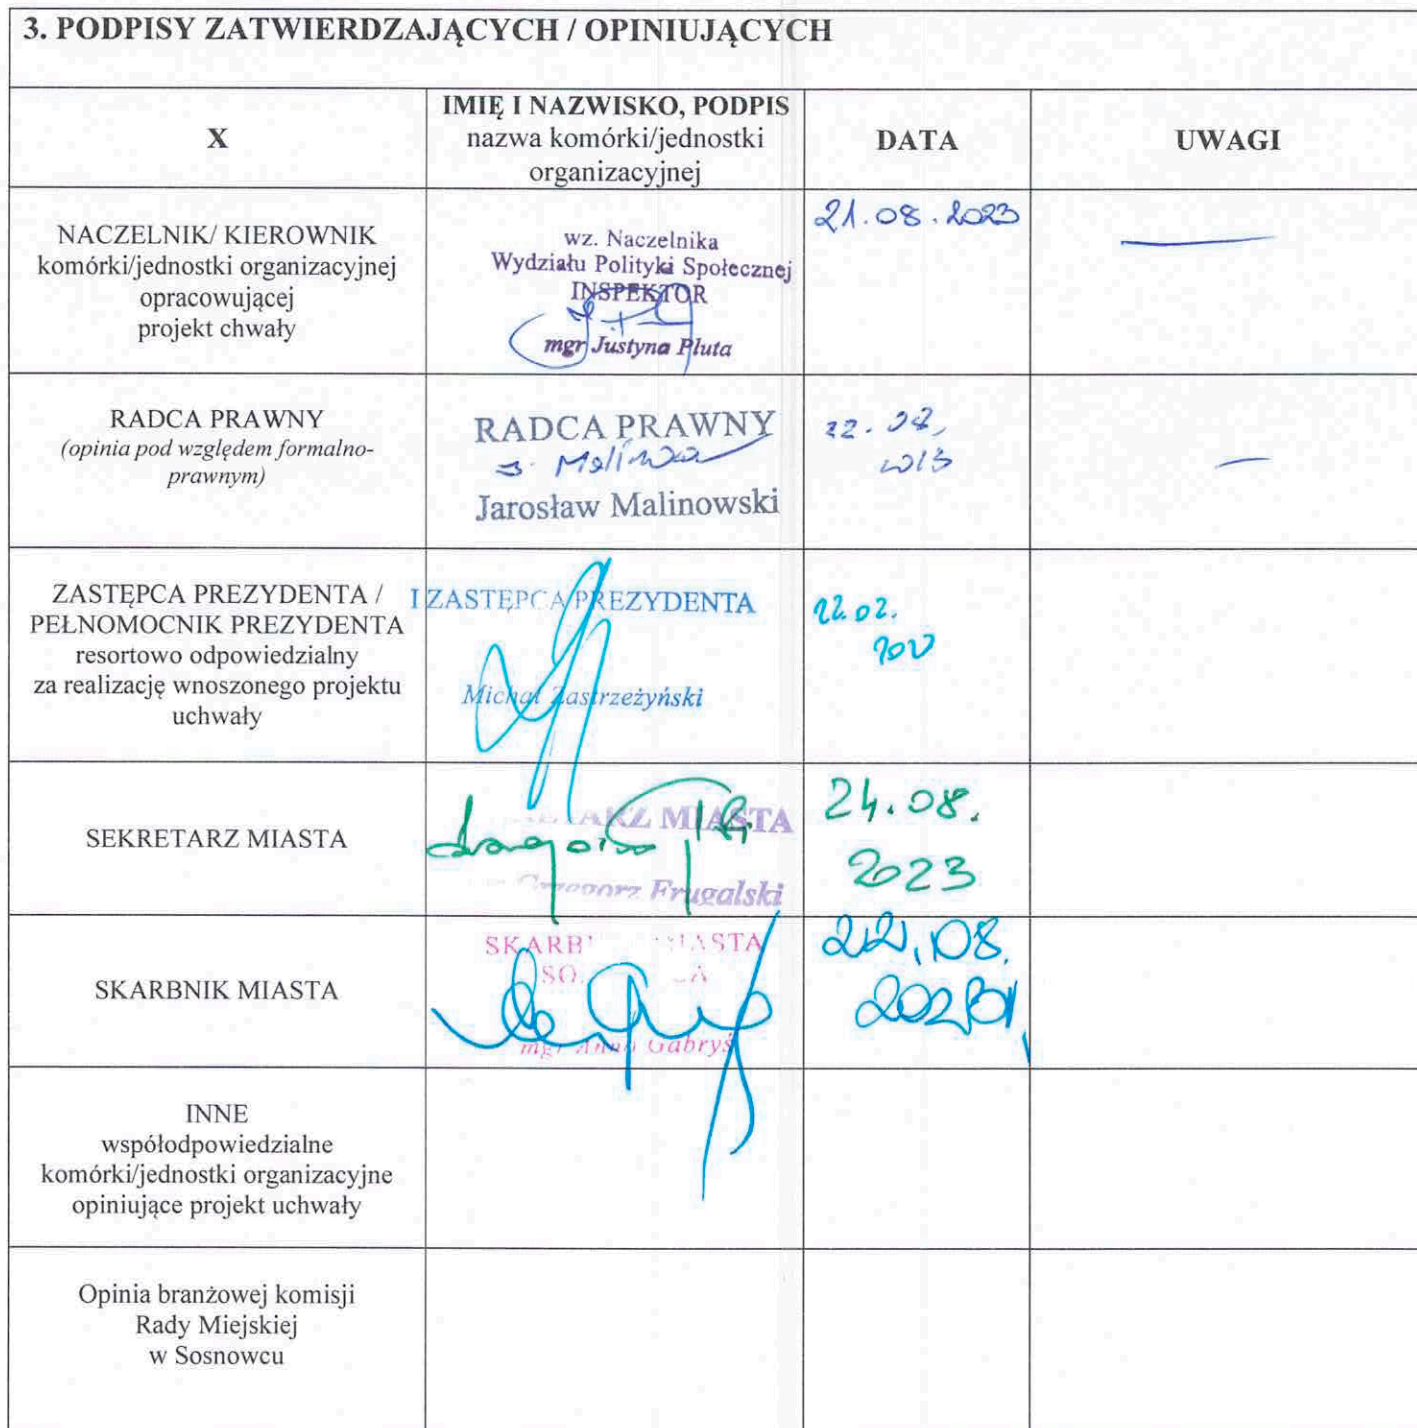 3. PODPISY ZATWIERDZAJĄCYCH / OPINIUJĄCYCH
X
IMIĘ I NAZWISKO, PODPIS
nazwa komórki/jednostki
organizacyjnej
DATA
UWAGI
NACZELNIK/ KIEROWNIK
komórki/jednostki organizacyjnej
opracowującej
projekt chwały
wz. Naczelnika
Wydziału Polityki Społecznej
INSPEKTOR
mgr Justyna Pluta
21.08.2023
RADCA PRAWNY
(opinia pod względem formalno-
prawnym)
RADCA PRAWNY
Jarosław Malinowski
22.
ZASTĘPCA PREZYDENTA /
PEŁNOMOCNIK PREZYDENTA
resortowo odpowiedzialny
za realizację wnoszonego projektu
uchwały
I ZASTĘPCA PREZYDENTA
Michał Zastrzeżyński
22.02.
SEKRETARZ MIASTA
MIASTA
Grzegorz Frugalski
24.08.
2023
SKARBNIK MIASTA
mgr Anna Gabryś
22.08.
INNE
współodpowiedzialne
komórki/jednostki organizacyjne
opiniujące projekt uchwały
Opinia branżowej komisji
Rady Miejskiej
w Sosnowcu